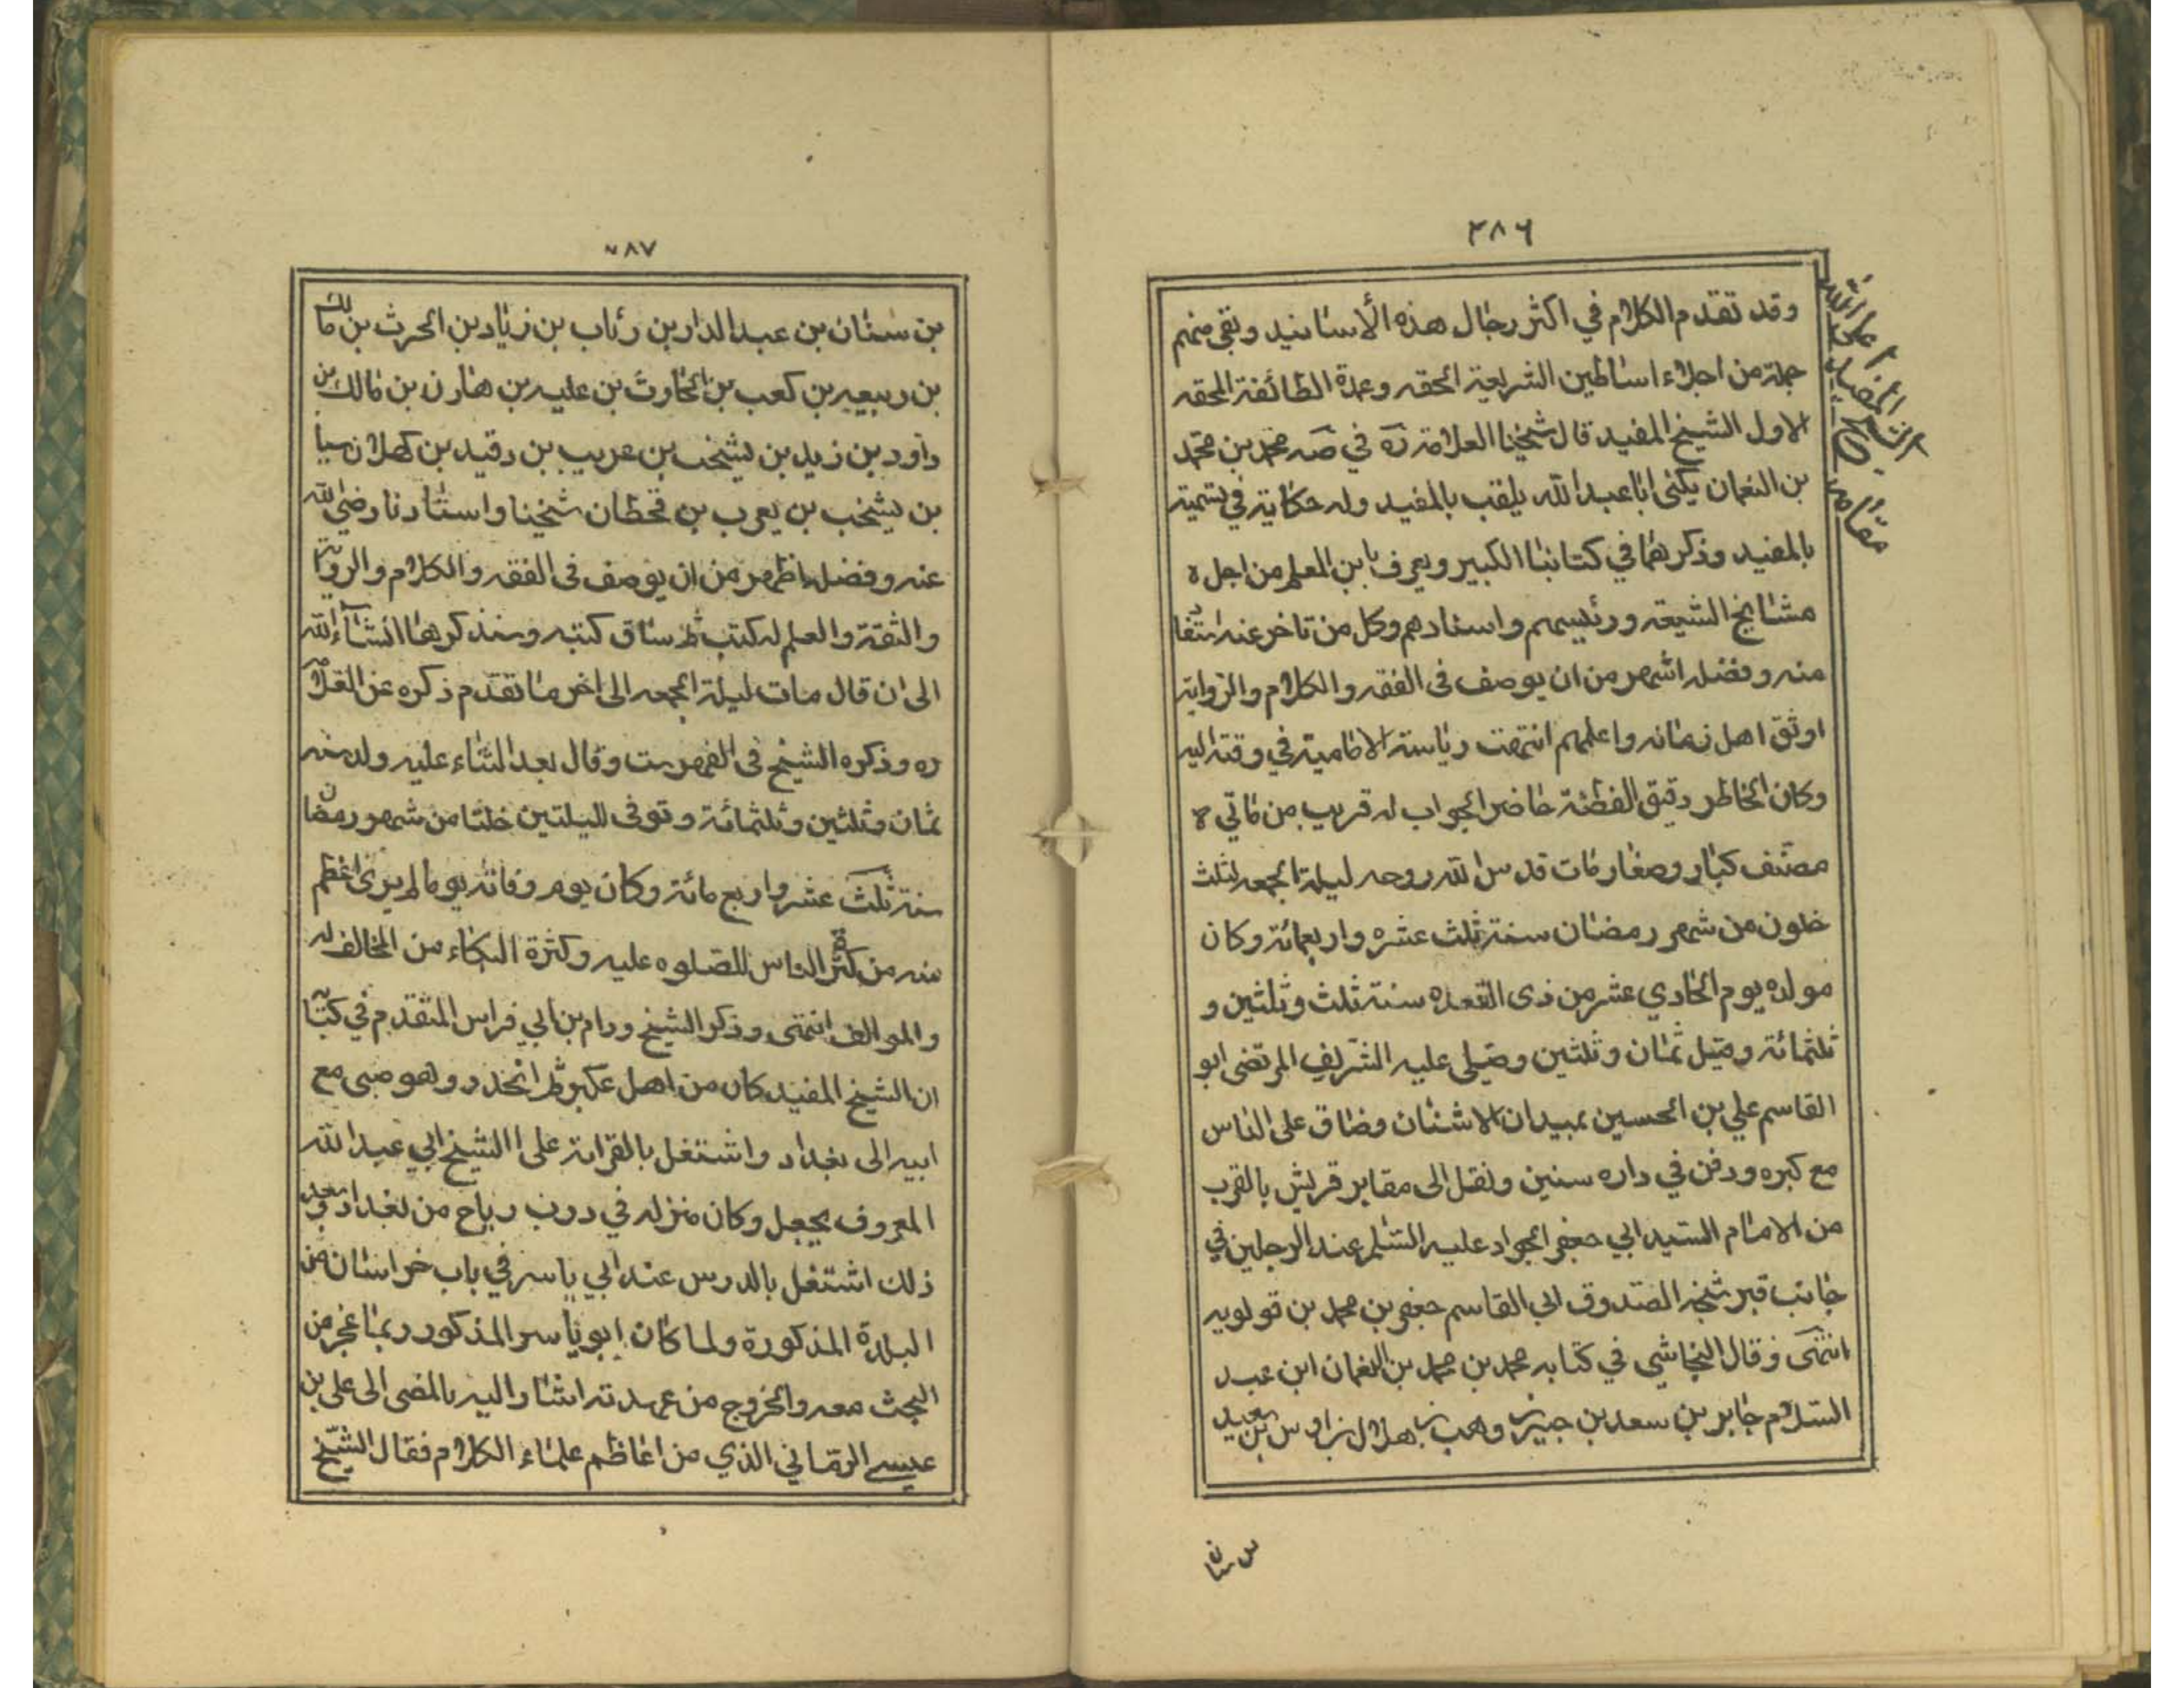 ٢٨٦
وقد تقدم الكلام في اكثر رجال هذه الأسانيد وبقي منهم
جملة من اجلاء اساطين الشريعة الحقه وعمدة الطائفة المحقه
الاول الشيخ المفيد قال شيخنا العلامة ره في صه محمد بن محمد
بن النعمان يكنى ابا عبد الله يلقب بالمفيد وله حكاية في تسميته
بالمفيد وذكرناها في كتابنا الكبير ويعرف بابن المعلم من اجل ه
مشايخ الشيعه ورئيسهم واستادهم وكل من تاخر عنه استفا
منه وفضله اشهر من ان يوصف فى الفقه والكلام والرواية
اوثق اهل زمانه واعلمهم انتهت رياسة الامامية في وقته اليه
وكان الخاطر دقيق الفطنة حاضر الجواب له قريب من ماتي ه
مصنف كبار وصغار مات قدس الله روحه ليلة الجمعه لثلث
خلون من شهر رمضان سنة ثلث عشره واربعمائة وكان
مولده يوم الحادي عشر من ذى القعده سنة ثلث وثلثين و
ثلثمائة وقيل ثمان وثلثين وصلى عليه الشريف المرتضى ابو
القاسم علي بن الحسين بميدان الاشنان وضاق على الناس
مع كبره ودفن في داره سنين ونقل الى مقابر قريش بالقرب
من الامام السيد ابي جعفر الجواد عليه السلم عند الرجلين في
جانب قبر شيخه الصدوق ابي القاسم جعفر بن محمد بن قولويه
انتهى وقال النجاشي في كتابه محمد بن محمد بن النعمان ابن عبد
السلام جابر بن سعد بن جبير وهب بن هلال بن اوس بن سعيد
بن سنان
٢٨٧
بن سنان بن عبد الدار بن رئاب بن زياد بن الحرث بن مالك
بن ربيعه بن كعب بن الحاوث بن عليه بن هارن بن مالك بن
داود بن زيد بن يشخب بن عريب بن دقيد بن كهلان سبا
بن يشخب بن يعرب بن قحطان شيخنا واستادنا رضي الله
عنه وفضله اظهر من ان يوصف فى الفقه والكلام والرواية
والثقة والعلم له كتب ثم ساق كتبه وسنذكرها انشاء الله
الى ان قال مات ليلة الجمعه الى اخر ما تقدم ذكره عن العلامة
ره وذكره الشيخ فى الفهرست وقال بعد الثناء عليه ولد سنه
ثمان وثلثين وثلثمائة وتوفى لليلتين خلتا من شهر رمضان
سنة ثلث عشر واربع مائة وكان يوم وفاته يوما لم يرى اعظم
منه من كثرة الناس للصلوه عليه وكثرة البكاء من المخالف له
والموالف انتهى وذكر الشيخ ورام بن ابي فراس المتقدم في كتابه
ان الشيخ المفيد كان من اهل عكبر ثم انحدر وهو صبى مع
ابيه الى بغداد واشتغل بالقراءة على االشيخ ابي عبد الله
المعروف بجعل وكان منزله في درب رباح من بغداد وبعد
ذلك اشتغل بالدرس عند ابي ياسر في باب خراسان من
البلدة المذكورة ولما كان ابو ياسر المذكور ربما عجز من
البحث معه والخروج من عهدته اشار اليه بالمضى الى على بن
عيسى الرماني الذي من اعاظم علماء الكلام فقال الشيخ